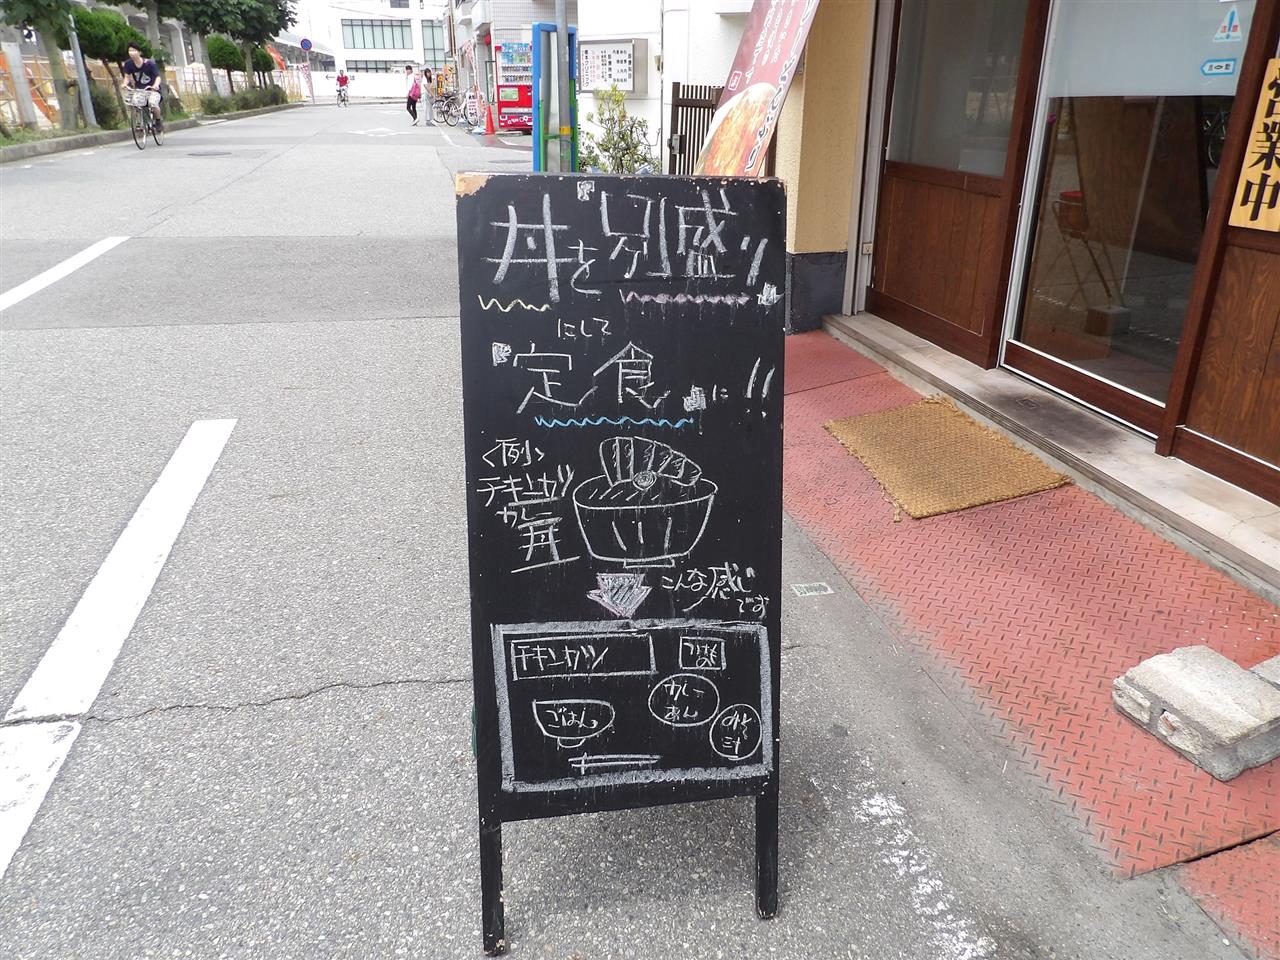 丼を別盛り
にして
『定食』に!!
<例>
チキンカツ
カレー
丼
こんな感じ
です
チキンカツ
つけもの
ごはん
カレー
あん
みそ
汁
営業中